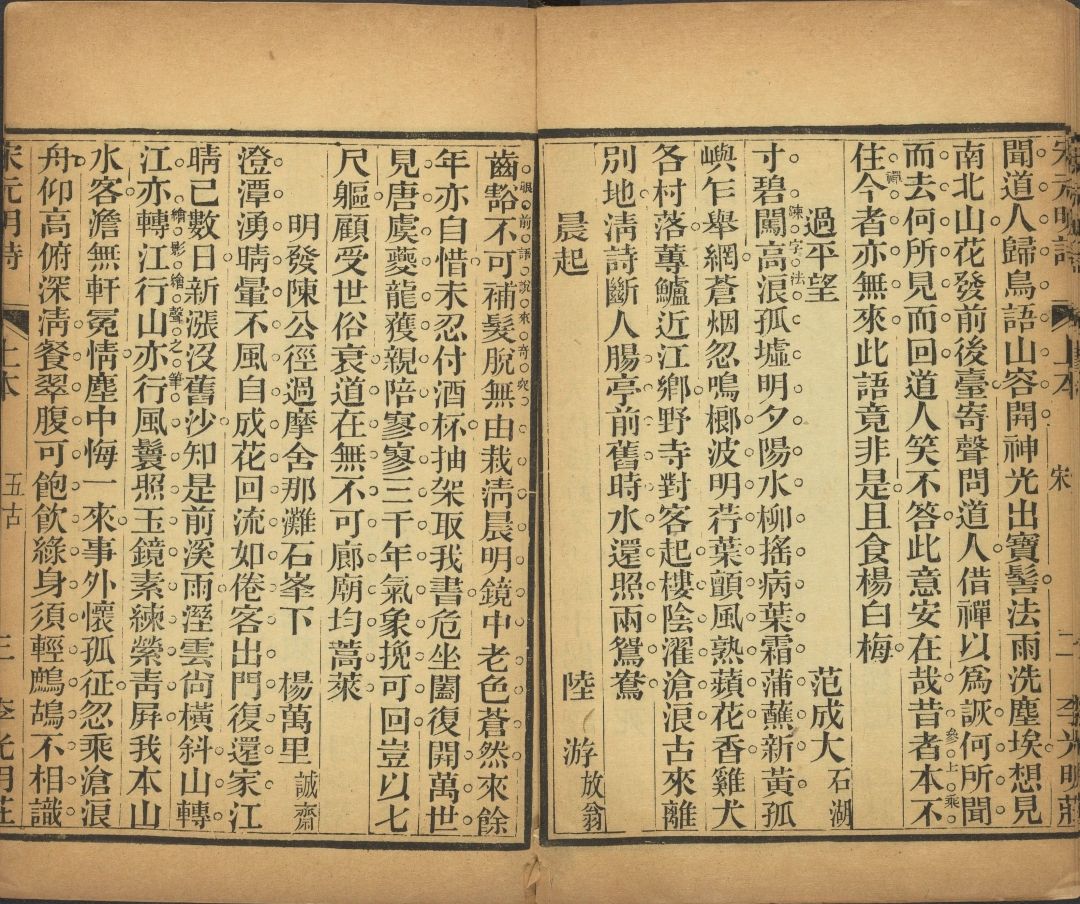 宋元明詩 上本 宋 二 李光明莊
聞道人歸鳥語山容開神光出寶髻法雨洗塵埃想見
南北山花發前後臺寄聲問道人借禪以爲詼何所聞
而去何所見而回道人笑不答此意安在哉昔者本不
參上乘禪
住今者亦無來此語竟非是且食楊白梅
過平望 范成大 石湖
寸碧闖高浪孤墟明夕陽水柳搖病葉霜蒲蘸新黃孤
煉字法
嶼乍舉網蒼烟忽鳴榔波明荇葉顫風熟蘋花香雞犬
各村落蓴鱸近江鄉野寺對客起樓陰濯滄浪古來離
別地淸詩斷人腸亭前舊時水還照兩鴛鴦
晨起 陸游 放翁
齒豁不可補髮脫無由栽淸晨明鏡中老色蒼然來餘
眼前語說來奇突
年亦自惜未忍付酒杯抽架取我書危坐闔復開萬世
見唐虞夔龍獲親陪寥寥三千年氣象挽可回豈以七
尺軀顧受世俗衰道在無不可廊廟均蒿萊
明發陳公徑過摩舍那灘石峯下 楊萬里 誠齋
澄潭湧晴暈不風自成花回流如倦客出門復還家江
晴已數日新漲沒舊沙知是前溪雨溼雲尙橫斜山轉
江亦轉江行山亦行風鬟照玉鏡素練縈靑屛我本山
繪影繪聲之筆
水客澹無軒冕情塵中悔一來事外懷孤征忽乘滄浪
舟仰高俯深淸餐翠腹可飽飲綠身須輕鷓鴣不相識
宋元明詩 上本 五古 三 李光明莊